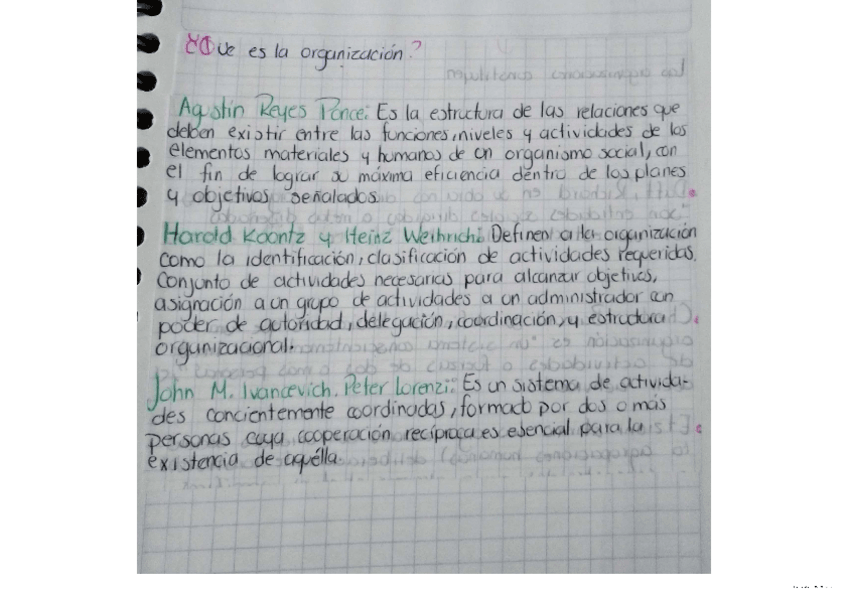 ¿Que es la organización?
Agustín Reyes Ponce: Es la estructura de las relaciones que
deben existir entre las funciones, niveles y actividades de los
elementos materiales y humanos de un organismo social, con
el fin de lograr su máxima eficiencia dentro de los planes
y objetivos señalados.
Harold Koontz y Heinz Weihrich: Definen a la organización
como la identificación, clasificación de actividades requeridas,
Conjunto de actividades necesarias para alcanzar objetivos,
asignación a un grupo de actividades a un administrador con
poder de autoridad, delegación, coordinación, y estructura
organizacional.
John M. Ivancevich. Peter Lorenzi: Es un sistema de activida-
des concientemente coordinadas, formado por dos o más
personas cuya cooperación recíproca es esencial para la
existencia de aquélla.